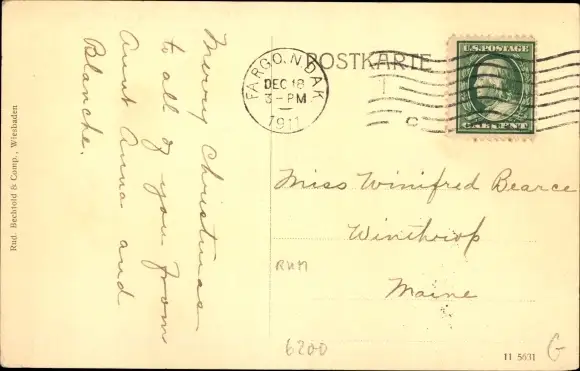 Merry Christmas
to all of you from
Aunt Anna and
Blanche.
Rud. Bechtold & Comp., Wiesbaden
POSTKARTE
FARGO, N DAK
DEC 18
3-PM
1911
C
U.S. POSTAGE
ONE CENT
Miss Winifred Bearce
Winthrop
Maine
RHM
6200
11 5631
G